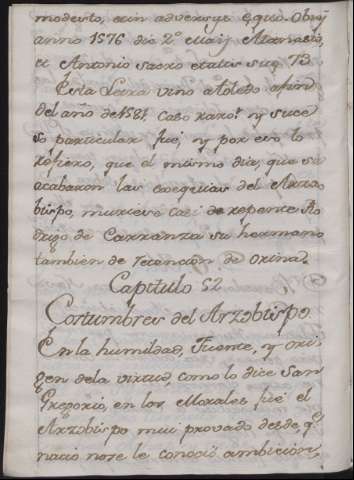 modesto, et in adversis equo. Obijt
anno 1576 die 2º Maij Atanasio,
et Antonio Sacro etatis suę 73.
Esta Letra vino a toledo a fin
del año de 1581. Caso raro! y suce
so particular fue, y por eso lo
refiero, que el mismo dia, que se
acabaron las exequias del Arzo
bispo, murieve casi de repente Ro
drigo de Carranza su hermano
tambien de retencion de orina.
Capitulo 52
Costumbres del Arzobispo
En la humildad, Fuente, y ori
gen dela virtud, como lo dice San
Gregorio, en los Morales fue el
Arzobispo mui provado desde q.e
nacio nose le conociò ambicion,